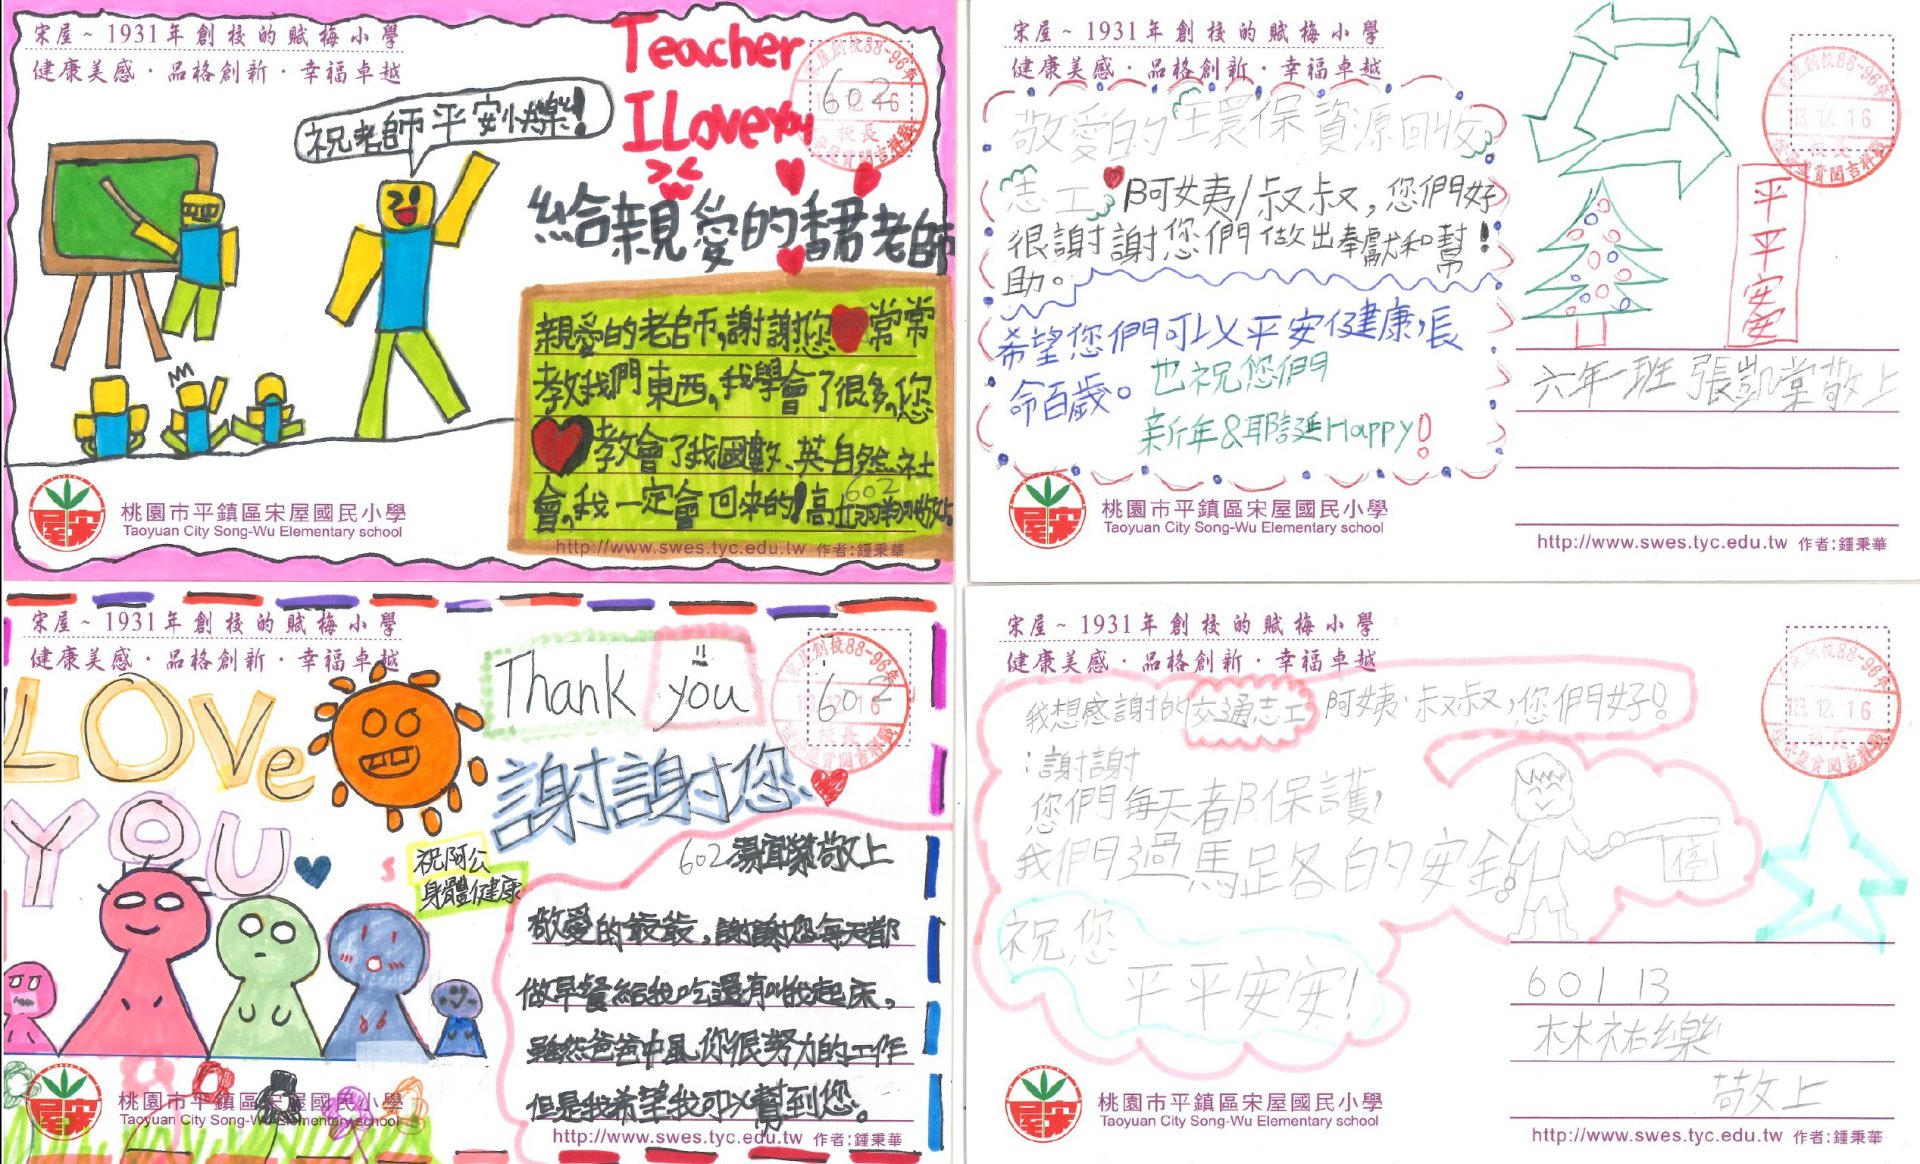 宋屋~1931年創校的賦梅小學
健康美感·品格創新·幸福卓越
Teacher
I Love You
602
祝老師平安快樂!
給親愛的書君老師
親愛的老師,謝謝您常常
教我們東西,我學會了很多,您
教會了我國數、英自然、社
會,我一定會回來的!高
602
敬上
桃園市平鎮區宋屋國民小學
Taoyuan City Song-Wu Elementary school
http://www.swes.tyc.edu.tw 作者:鍾秉華
宋屋~1931年創校的賦梅小學
健康美感·品格創新·幸福卓越
敬愛的環保資源回收
志工 阿姨/叔叔,您們好
很謝謝您們做出奉獻和幫
助。
希望您們可以平安健康,長
命百歲。
也祝您們
新年&耶誕Happy!
113.12.16
校長
平平安安
六年一班 張凱棠敬上
桃園市平鎮區宋屋國民小學
Taoyuan City Song-Wu Elementary school
http://www.swes.tyc.edu.tw 作者:鍾秉華
宋屋~1931年創校的賦梅小學
健康美感·品格創新·幸福卓越
LOVe
YOU
Thank you
602
謝謝您
祝阿公
身體健康
602湯宜蓁敬上
敬愛的爺爺,謝謝您每天都
做早餐給我吃還有叫我起床,
雖然爸爸中風你很努力的工作
但是我希望我可以幫到您。
桃園市平鎮區宋屋國民小學
Taoyuan City Song-Wu Elementary school
http://www.swes.tyc.edu.tw 作者:鍾秉華
宋屋~1931年創校的賦梅小學
健康美感·品格創新·幸福卓越
我想感謝的交通志工 阿姨、叔叔,您們好!
:謝謝
您們每天都保護,
我們過馬足各的安全!
停
祝您
平平安安!
113.12.16
校長
601 13
林祐樂
敬上
桃園市平鎮區宋屋國民小學
Taoyuan City Song-Wu Elementary school
http://www.swes.tyc.edu.tw 作者:鍾秉華